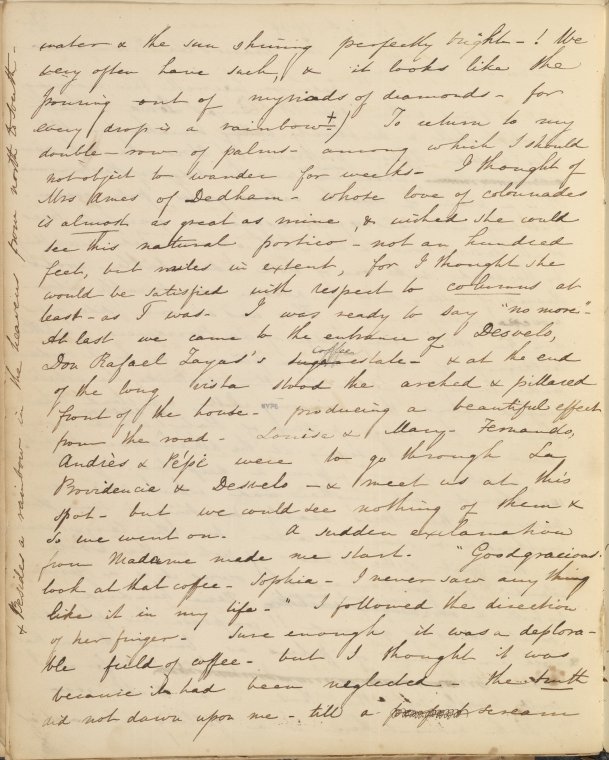 water & the sun shining perfectly bright - ! We
very often have such, & it looks like the
pouring out of myriads of diamonds - for
every drop is a rainbow +) To return to my
double row of palms - among which I should
not object to wander for weeks - I thought of
Mrs Ames of Dedham - whose love of colonnades
is almost as great as mine, & wished she could
see this natural portico - not an hundred
feet, but miles in extent, for I thought she
would be satisfied with respect to columns at
least - as I was. I was ready to say "no more" -
At last we came to the entrance of Desvelo,
Don Rafael Zayas's sugar coffee estate - & at the end
of the long vista stood the arched & pillared
front of the house - producing a beautiful effect
from the road - Louisa & Mary - Fernando,
Andrès & Pépé were to go through La
Providencia & Desvelo - & meet us at this
spot - but we could see nothing of them &
so we went on. A sudden exclamation
from Madame made me start - "Good gracious -
look at that coffee - Sophia - I never saw any thing
like it in my life -" I followed the direction
of her finger - Sure enough it was a deplora-
ble field of coffee - but I thought it was
because it had been neglected - the truth
did not dawn upon me - till a scream
+ Besides a rainbow in the heavens from north to south -
NYPL